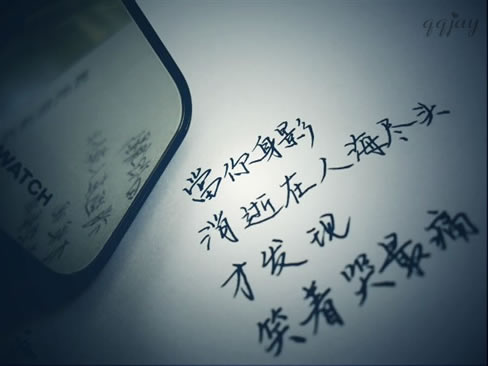 qqjay
WATCH
當你身影
消逝在人海尽头
才发现
笑着哭最痛